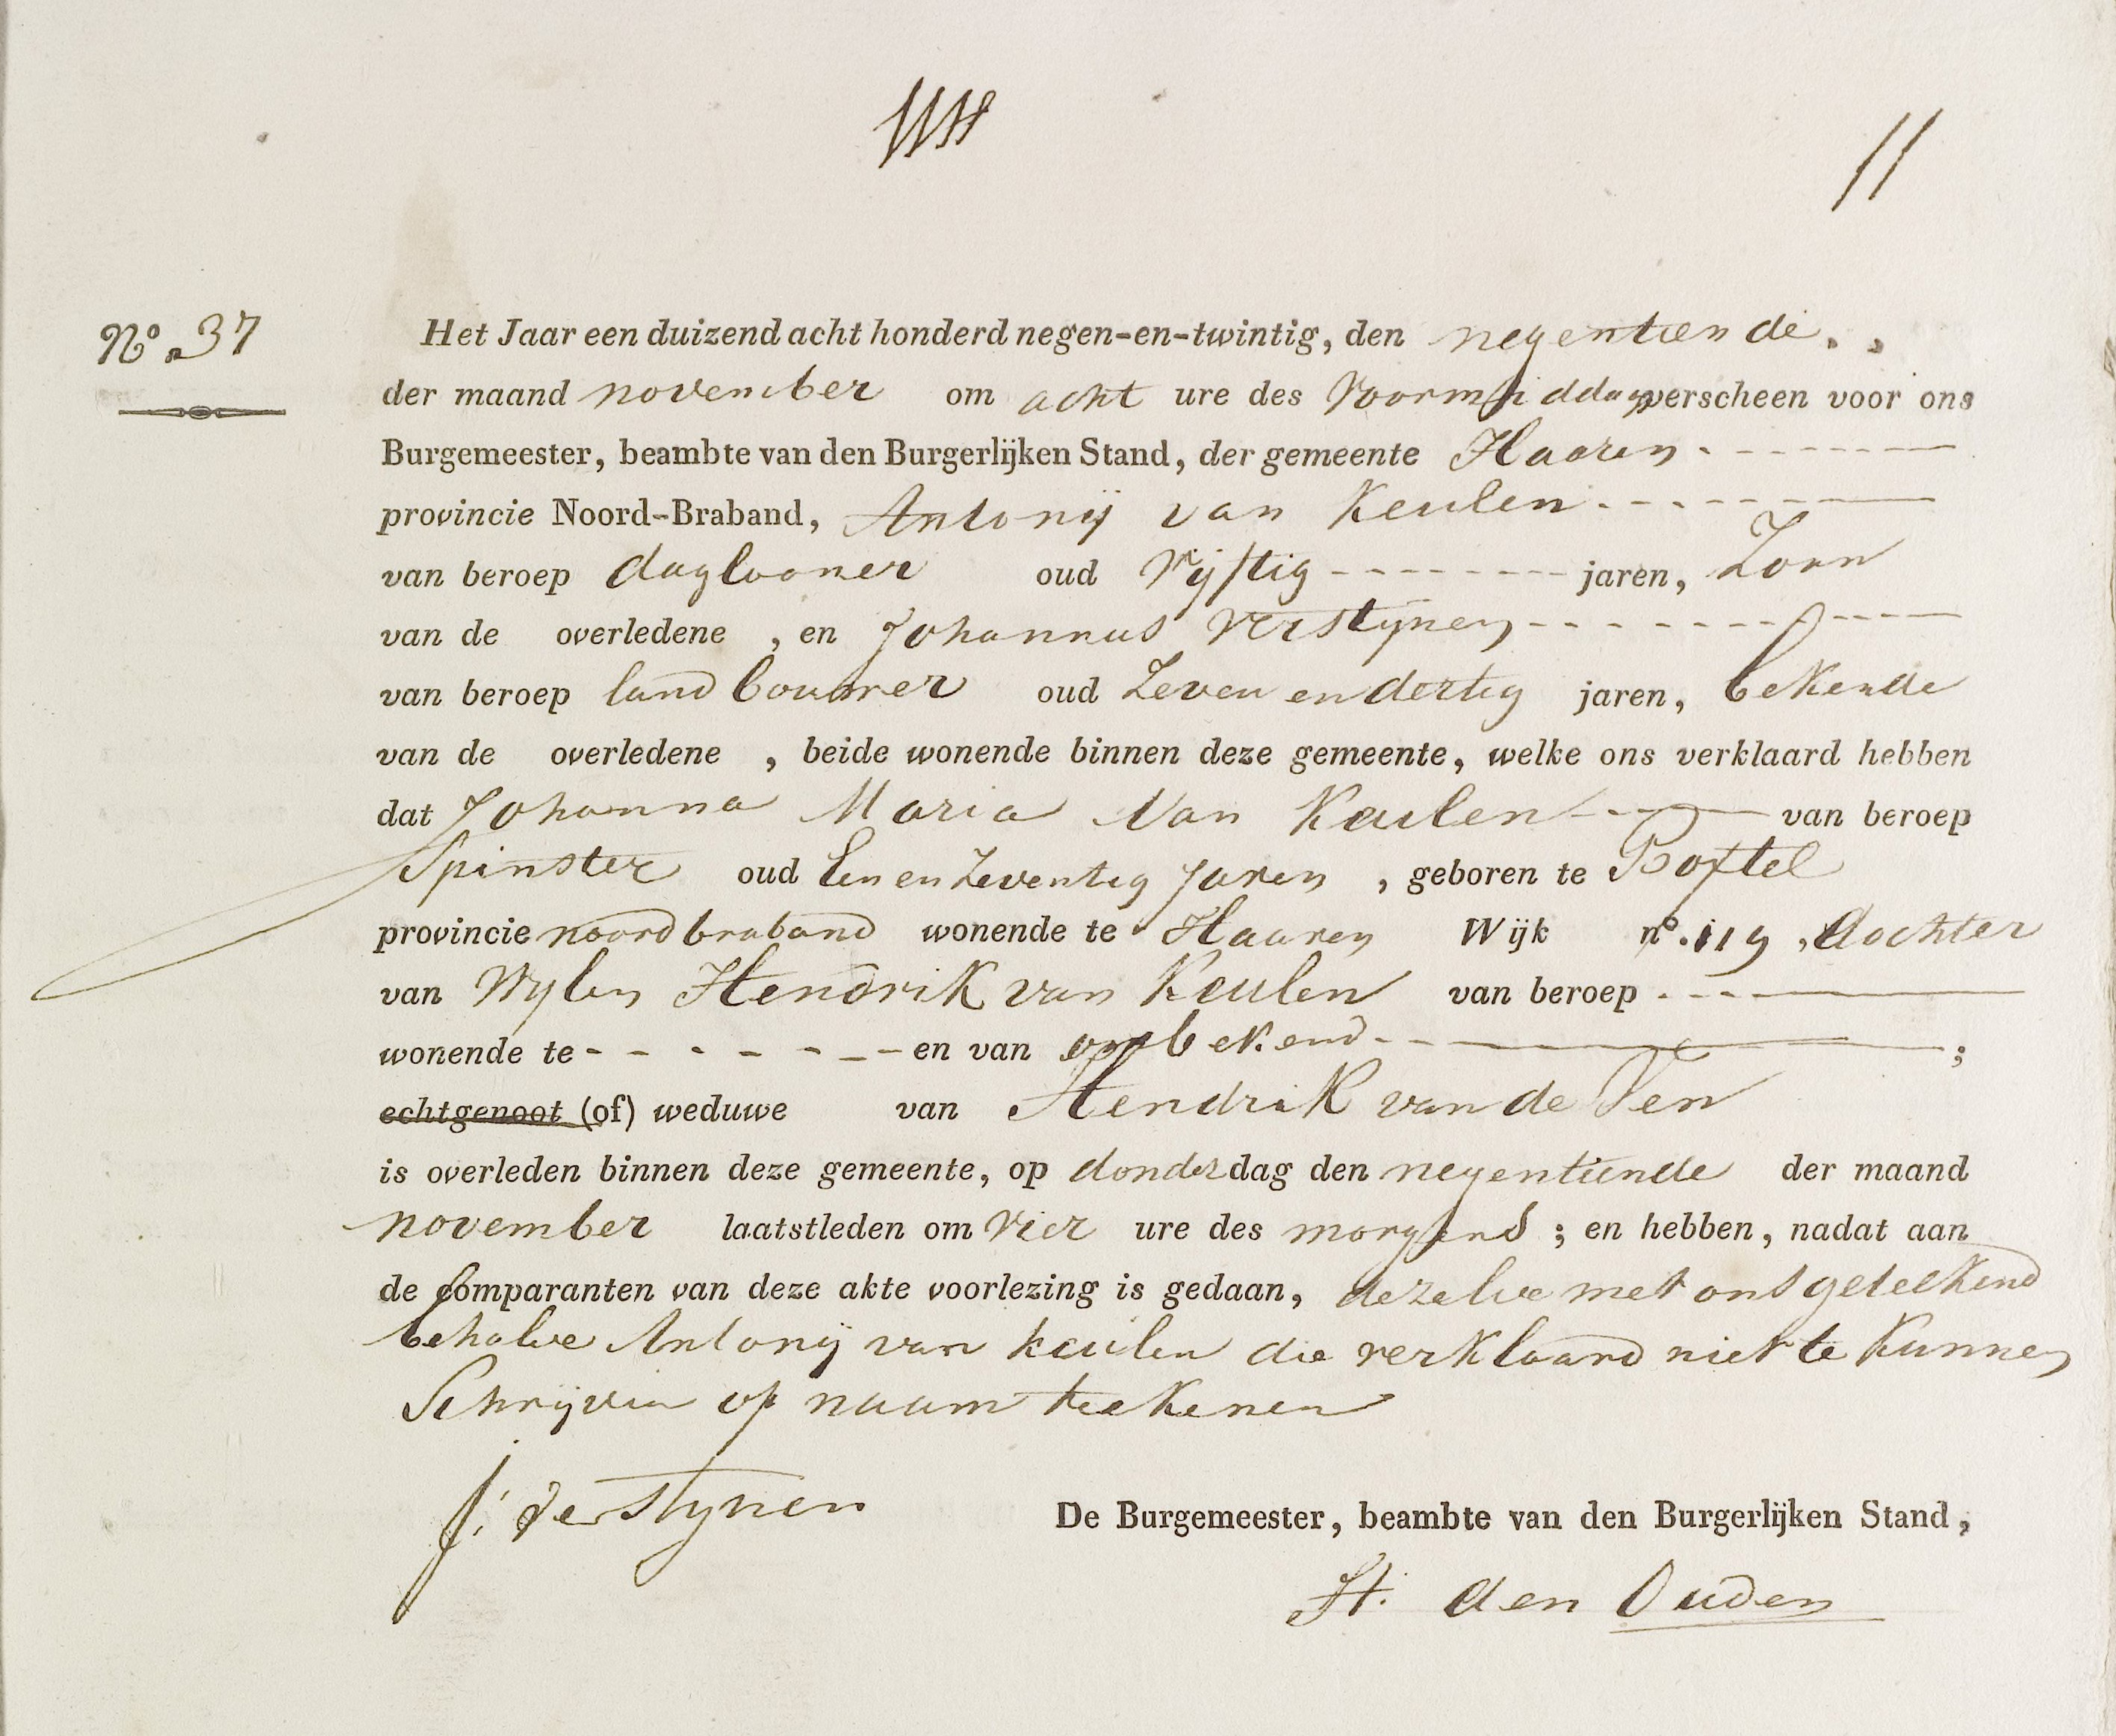 11
No. 37
Het Jaar een duizend acht honderd negen-en-twintig, den negentiende
der maand november om acht ure des Voormiddags verscheen voor ons
Burgemeester, beambte van den Burgerlijken Stand, der gemeente Haaren
provincie Noord-Braband, Antonij van Keulen
van beroep daglooner oud Vijftig jaren, Zoon
van de overledene , en Johannus Verstijnen
van beroep landbouwer oud Zeven en dertig jaren, bekende
van de overledene , beide wonende binnen deze gemeente, welke ons verklaard hebben
dat Johanna Maria Van Keulen van beroep
Spinster oud Een en Zeventig Jaren , geboren te Boxtel
provincie noord braband wonende te Haaren Wijk no. 119 , dochter
van Wylen Hendrik van Keulen van beroep
wonende te en van onbekend ;
echtgenoot (of) weduwe van Hendrik van de Ven
is overleden binnen deze gemeente, op donderdag den negentiende der maand
november laatstleden om Vier ure des morgens ; en hebben, nadat aan
de Comparanten van deze akte voorlezing is gedaan, dezelve met ons geteekend
behalve Antonij van keulen die verklaard niet te Kunnen
Schrijven of naam teekenen
J: Verstynen
De Burgemeester, beambte van den Burgerlijken Stand,
H. den Ouden